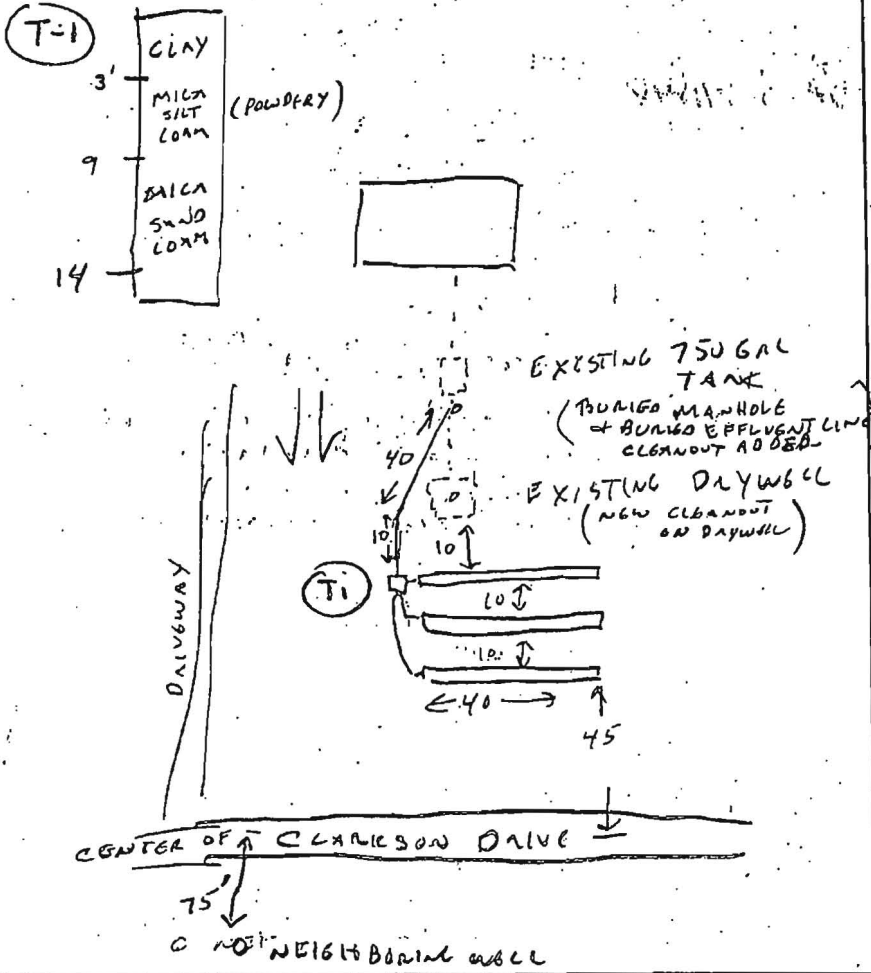 T-1
CLAY
3'
MICA
SILT
LOAM
(POWDERY)
9
MICA
SAND
LOAM
14
EXISTING 750 GAL
TANK
(BURIED MANHOLE
+ BURIED EFFLUENT LINE
CLEANOUT ADDED
40
EXISTING DRYWELL
(NEW CLEANOUT
ON DRYWELL)
10
10
T1
10
10
40
45
DRIVEWAY
CENTER OF CLARKSON DRIVE
75'
NEIGHBORING WELL